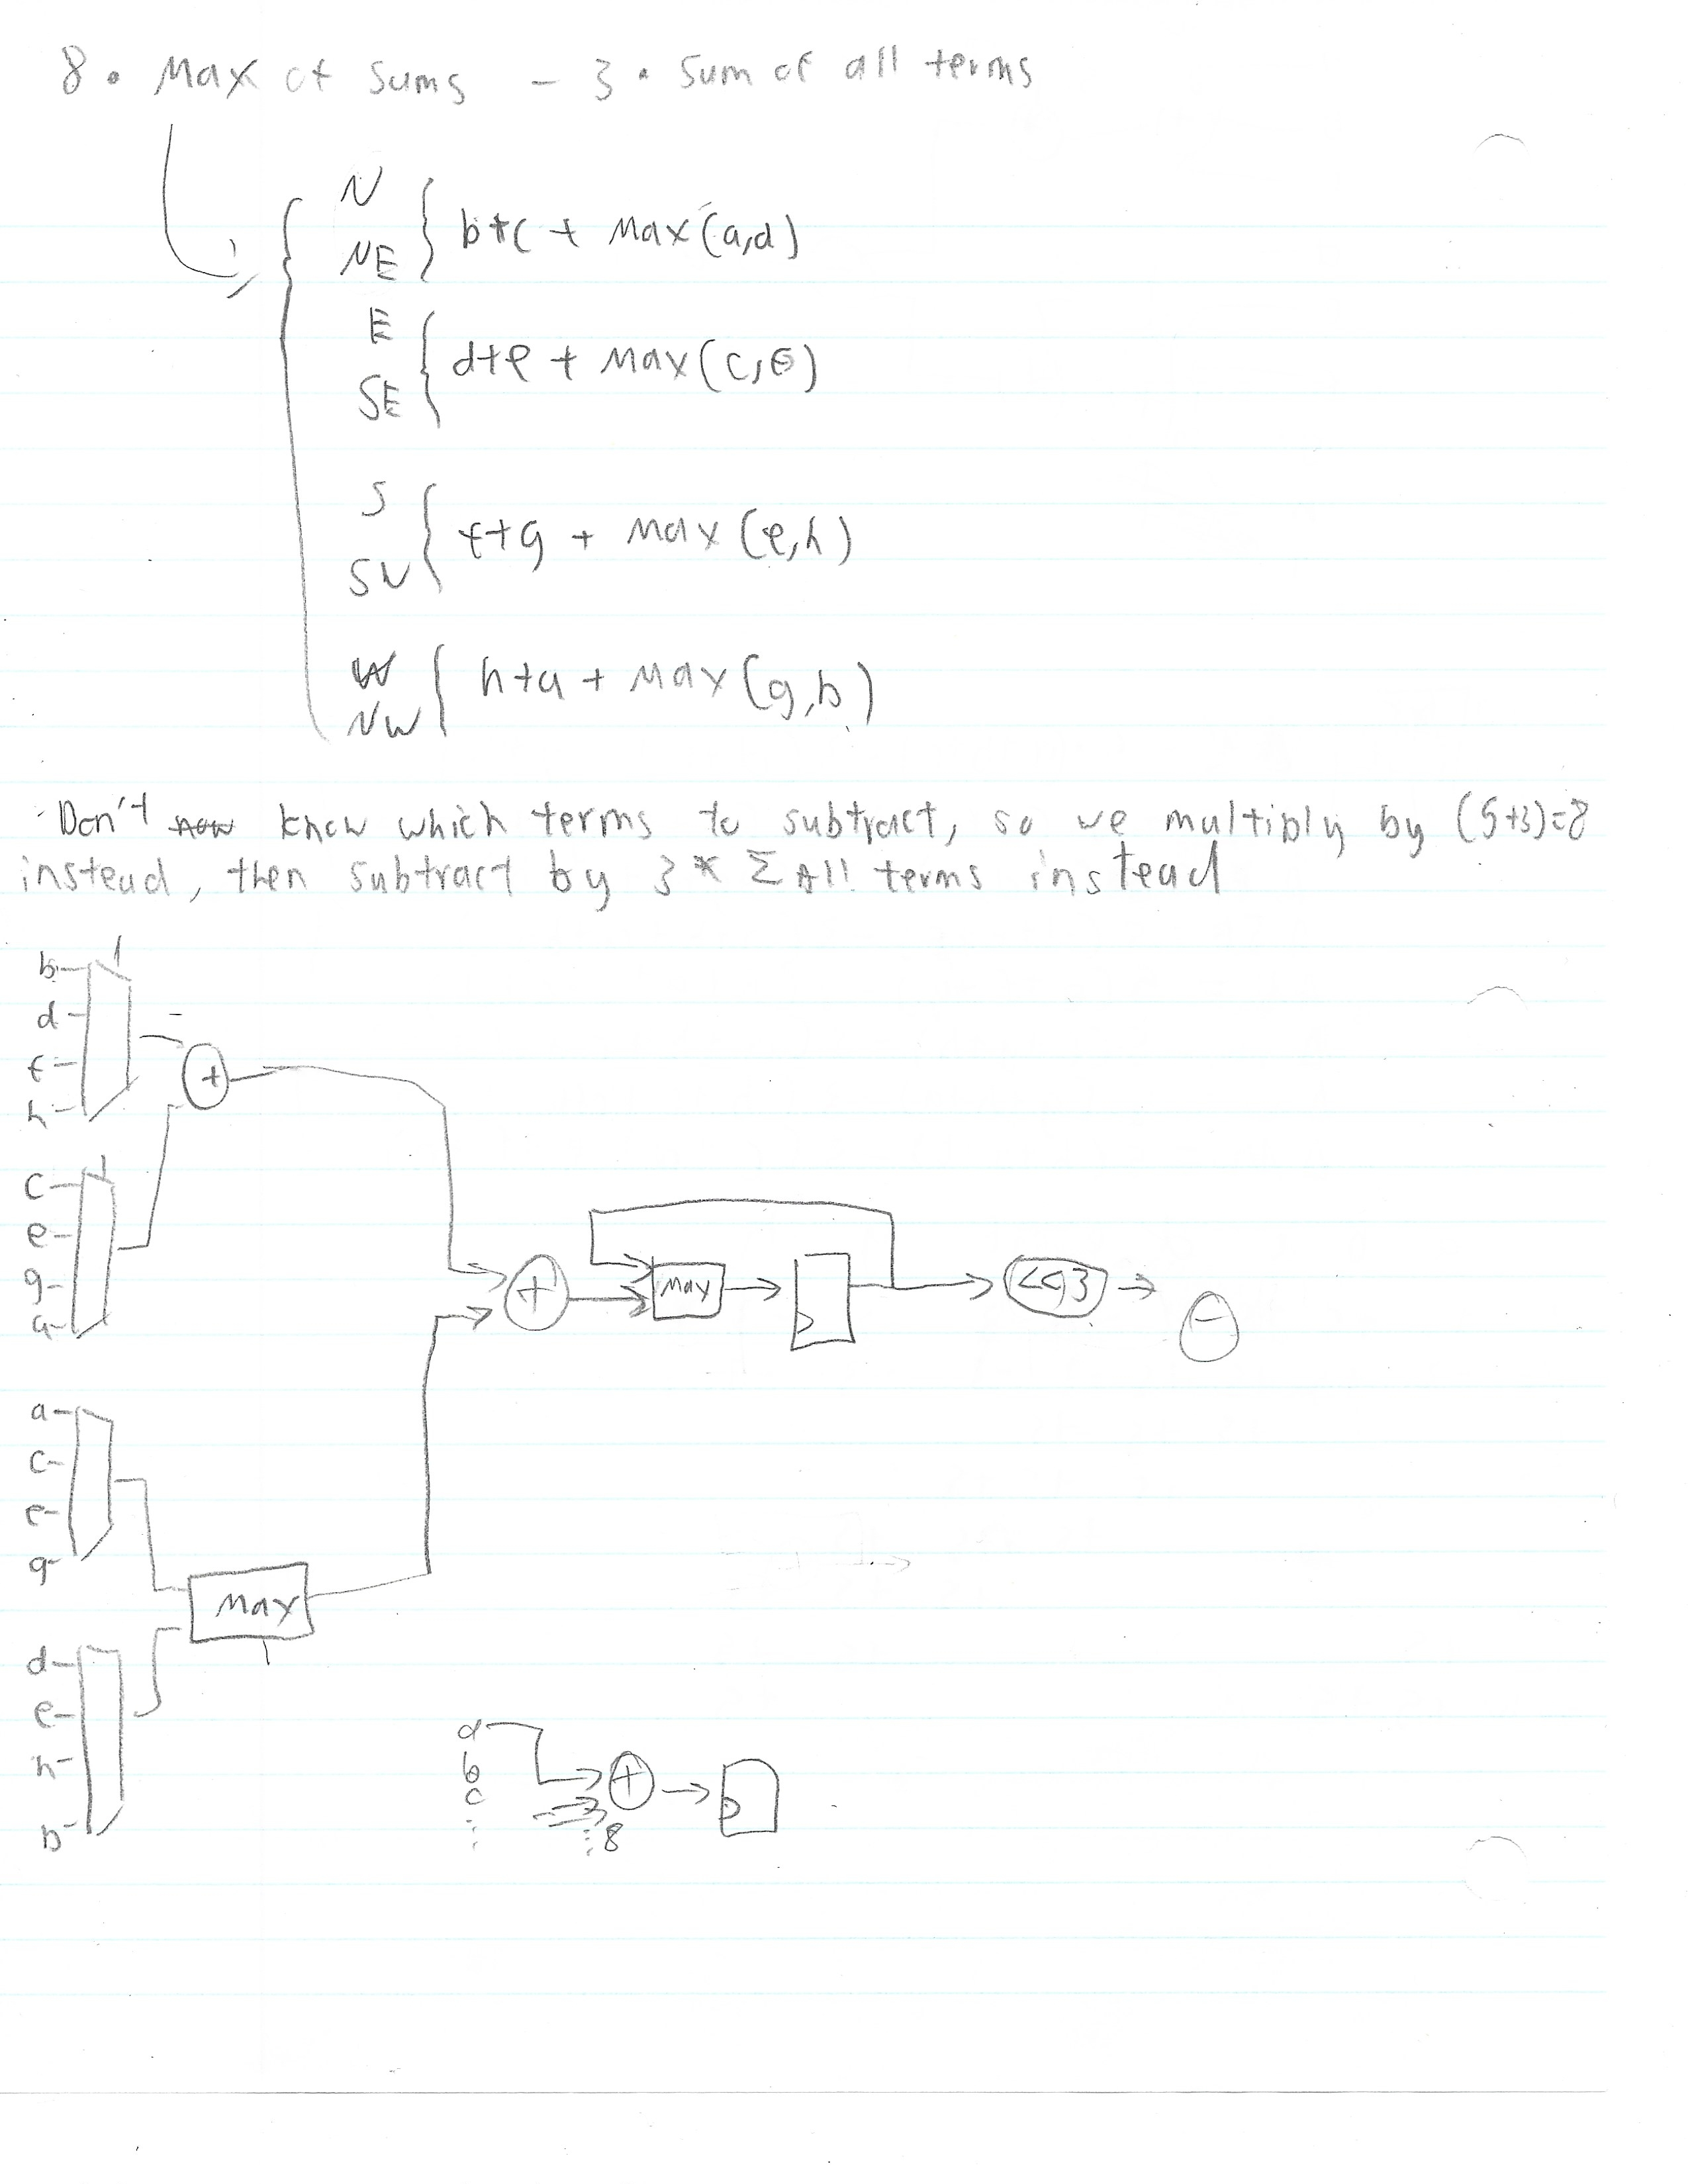 8 • Max of sums - 3 • sum of all terms
N
NE
b+c + Max(a,d)
E
SE
d+e + Max(c,
S
SW
f+g + Max(e,h)
W
NW
h+a + Max(g,b)
Don't know which terms to subtract, so we multiply by (5+3)=8
instead, then subtract by 3 * Σ All terms instead
b
d
f
h
+
c
e
g
a
+
Max
<<3
-
a
c
e
g
Max
d
e
h
b
a
b
c
⋮
+
⋮8